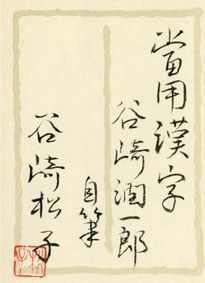 當用漢字
谷崎潤一郎
自筆
谷崎松子